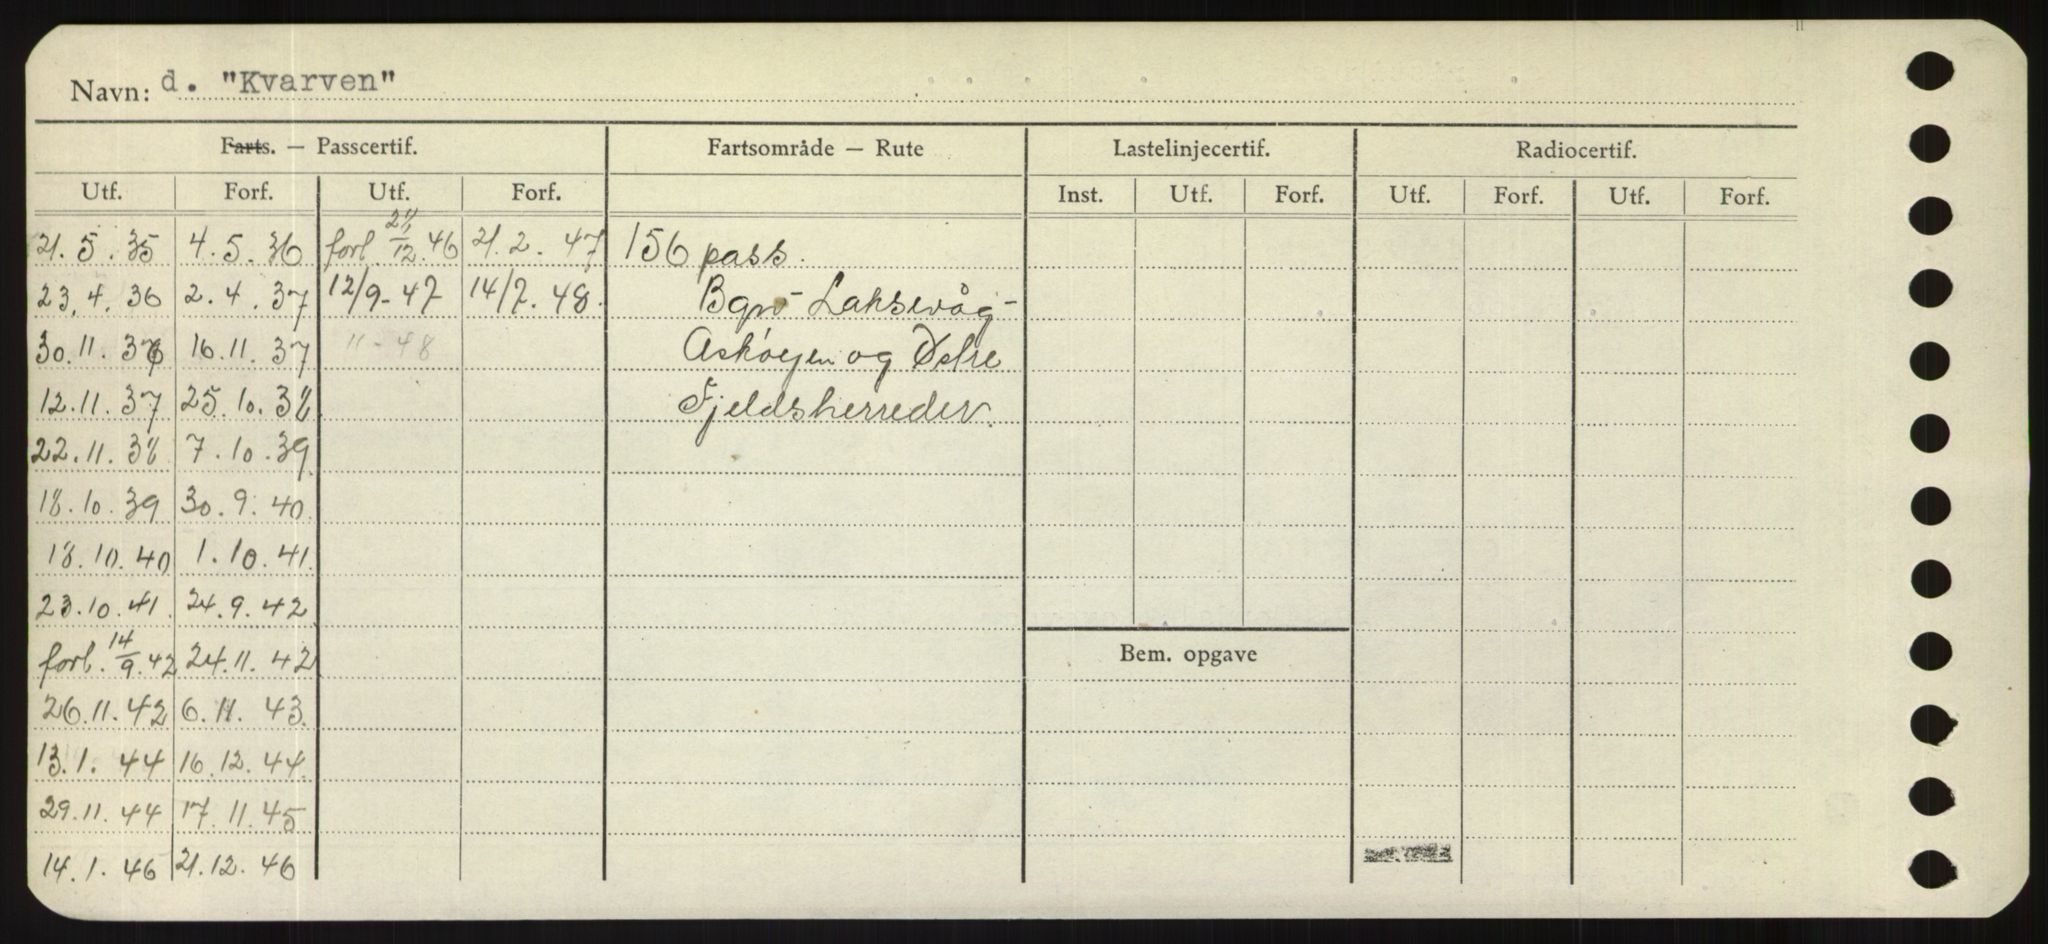 Navn: d. "Kvarven"
Farts. — Passcertif. Fartsområde — Rute Lastelinjecertif. Radiocertif.
Utf. Forf. Utf. Forf. Inst. Utf. Forf. Utf. Forf. Utf. Forf.
21. 5. 35 4. 5. 36 forl. 21/12. 46 21. 2. 47 156 pass.
23. 4. 36 2. 4. 37 12/9-47 14/7. 48. Bgn-Laksevåg-
30. 11. 36 16. 11. 37 11-48 Askøyen og Östre
12. 11. 37 25. 10. 38 Fjeldsherreder.
22. 11. 38 7. 10. 39
18. 10. 39 30. 9. 40
18. 10. 40 1. 10. 41.
23. 10. 41. 24. 9. 42
forl. 14/9. 42 24. 11. 42 Bem. opgave
26. 11. 42 6. 11. 43.
13. 1. 44 16. 12. 44.
29. 11. 44 17. 11. 45
14. 1. 46 21. 12. 46